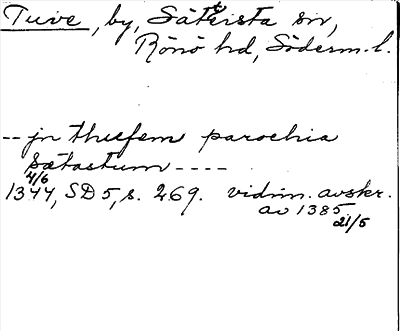 Tuve, by, Sätersta sn,
Rönö hd, Söderm. l.
-- jn thuefem parochia
Sætastum ----
4/6
1344, SD 5, s. 269. vidim. avskr.
av 1385
21/5